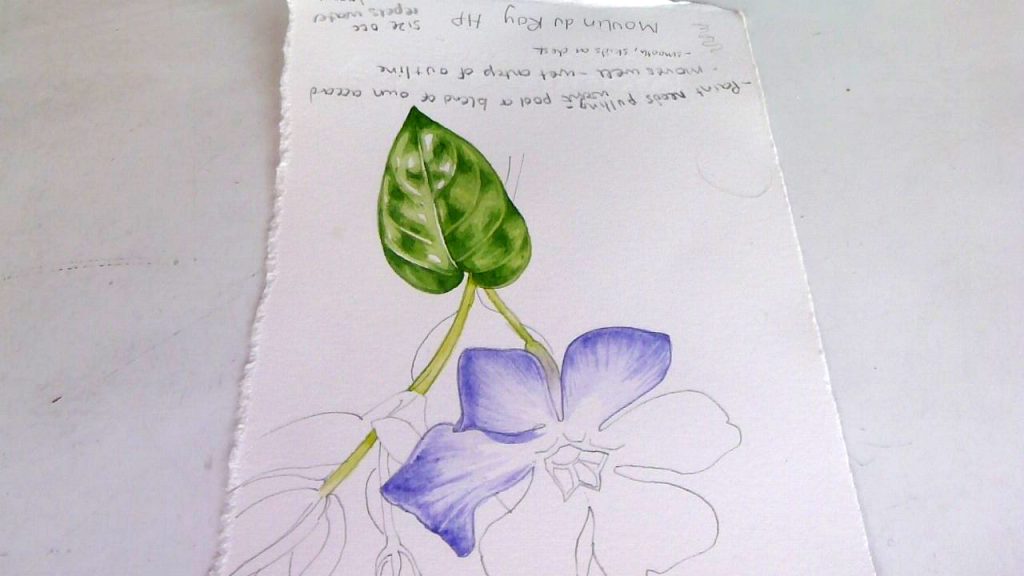 - Paint needs pulling -
pool or blend of own accord
- moves well - wet on top of outline
- smooth, skids on desk
Moulin du Roy HP
size
repels water